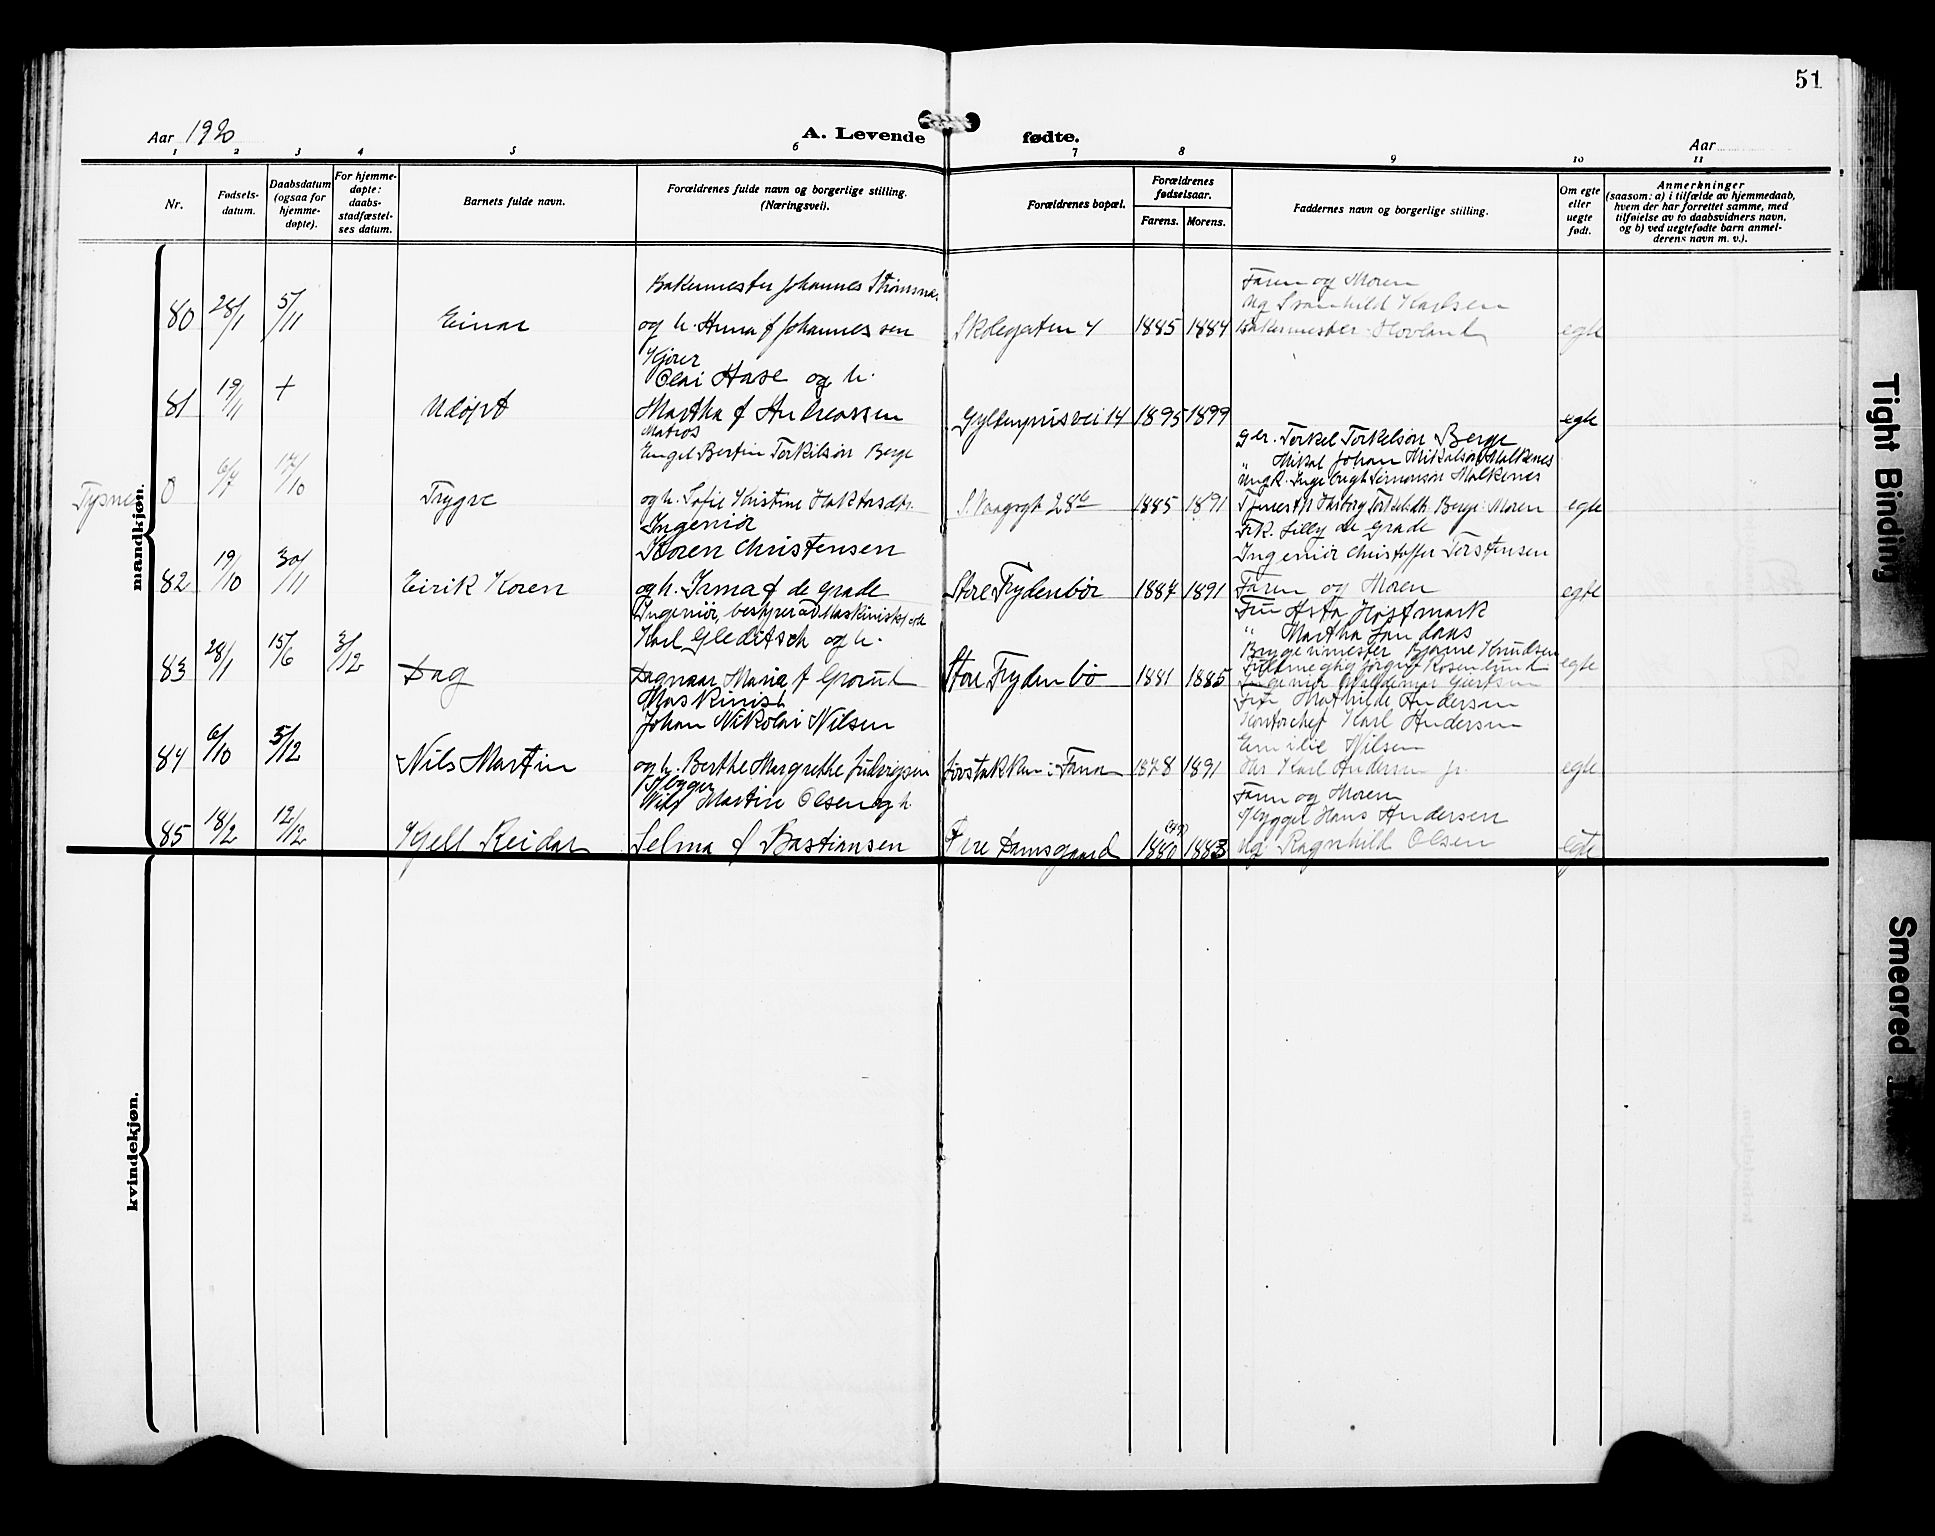 51
Aar 1920
A. Levende fødte.
Aar
1 2 3 4 5 6 7 8 9 10 11
Nr.
Fødsels-
datum.
Daabsdatum
(ogsaa for
hjemme-
døpte).
For hjemme-
døpte:
daabs-
stadfæstel-
ses datum.
Barnets fulde navn.
Forældrenes fulde navn og borgerlige stilling.
(Næringsvei).
Forældrenes bopæl.
Forældrenes
fødselsaar.
Farens. Morens.
Faddernes navn og borgerlige stilling.
Om egte
eller
uegte
født.
Anmerkninger
(saasom: a) i tilfælde av hjemmedaab,
hvem der har forrettet samme, med
tilføielse av to daabsvidners navn,
og b) ved uegtefødte barn anmel-
derens navn m. v.).
mandkjøn.
Bakermester Johannes Strømsnes
80 28/1 5/11 Einar og h. Anna f Johannessen Skolegaten 4 1885 1884
Faren og Moren
Ug Svanhild Karlsen
Bakermester Hovland egte
Kjører
Olai Aase og h.
81 19/11 + Udøpt Martha f Andreassen Gyldenprisvei 14 1895 1899 egte
Matros
Engel Bertin Torkilson Berge
Tysnes 0 6/7 17/10 Trygve og h. Sofie Kristine 1885 1891
Torkel Torkelson Berge
" Mikal Johan Mikalson Malkenes
Malkenes
Berge Moren egte
Ingeniør
Koren Christensen
82 19/10 30/11 Eirik Koren og h. Irma f de Grade Store Frydenbø 1887 1891
Frk. Lilly de Grade
Ingeniør Christoffer Torstensen
Faren og Moren egte
Ingeniør, bestyrer av
Karl Gleditsch og h.
83 28/1 15/6 3/12 Dag Dagmar Maria f Grorud Store Frydenbø 1881 1885
Fru Asta Høstmark
" Martha
Bjarne Knudsen
Rosenlund egte
Maskinist
Johan Nikolai Nilsen
84 6/10 5/12 Nils Martin og h. Berthe Margrethe i Fana 1878 1891
Fru Mathilde Andersen
Kontorchef Karl Andersen
Emilie Nilsen
Karl Andersen jr. egte
Bygger
Nils Martin Olsen og h.
85 18/2 12/12 Kjell Reidar Selma f Bastiansen Øvre Damsgaard 1880 1883
Faren og Moren
Bygger Hans Andersen
Ug Ragnhild Olsen egte
kvindekjøn.
Tight Binding
Smeared